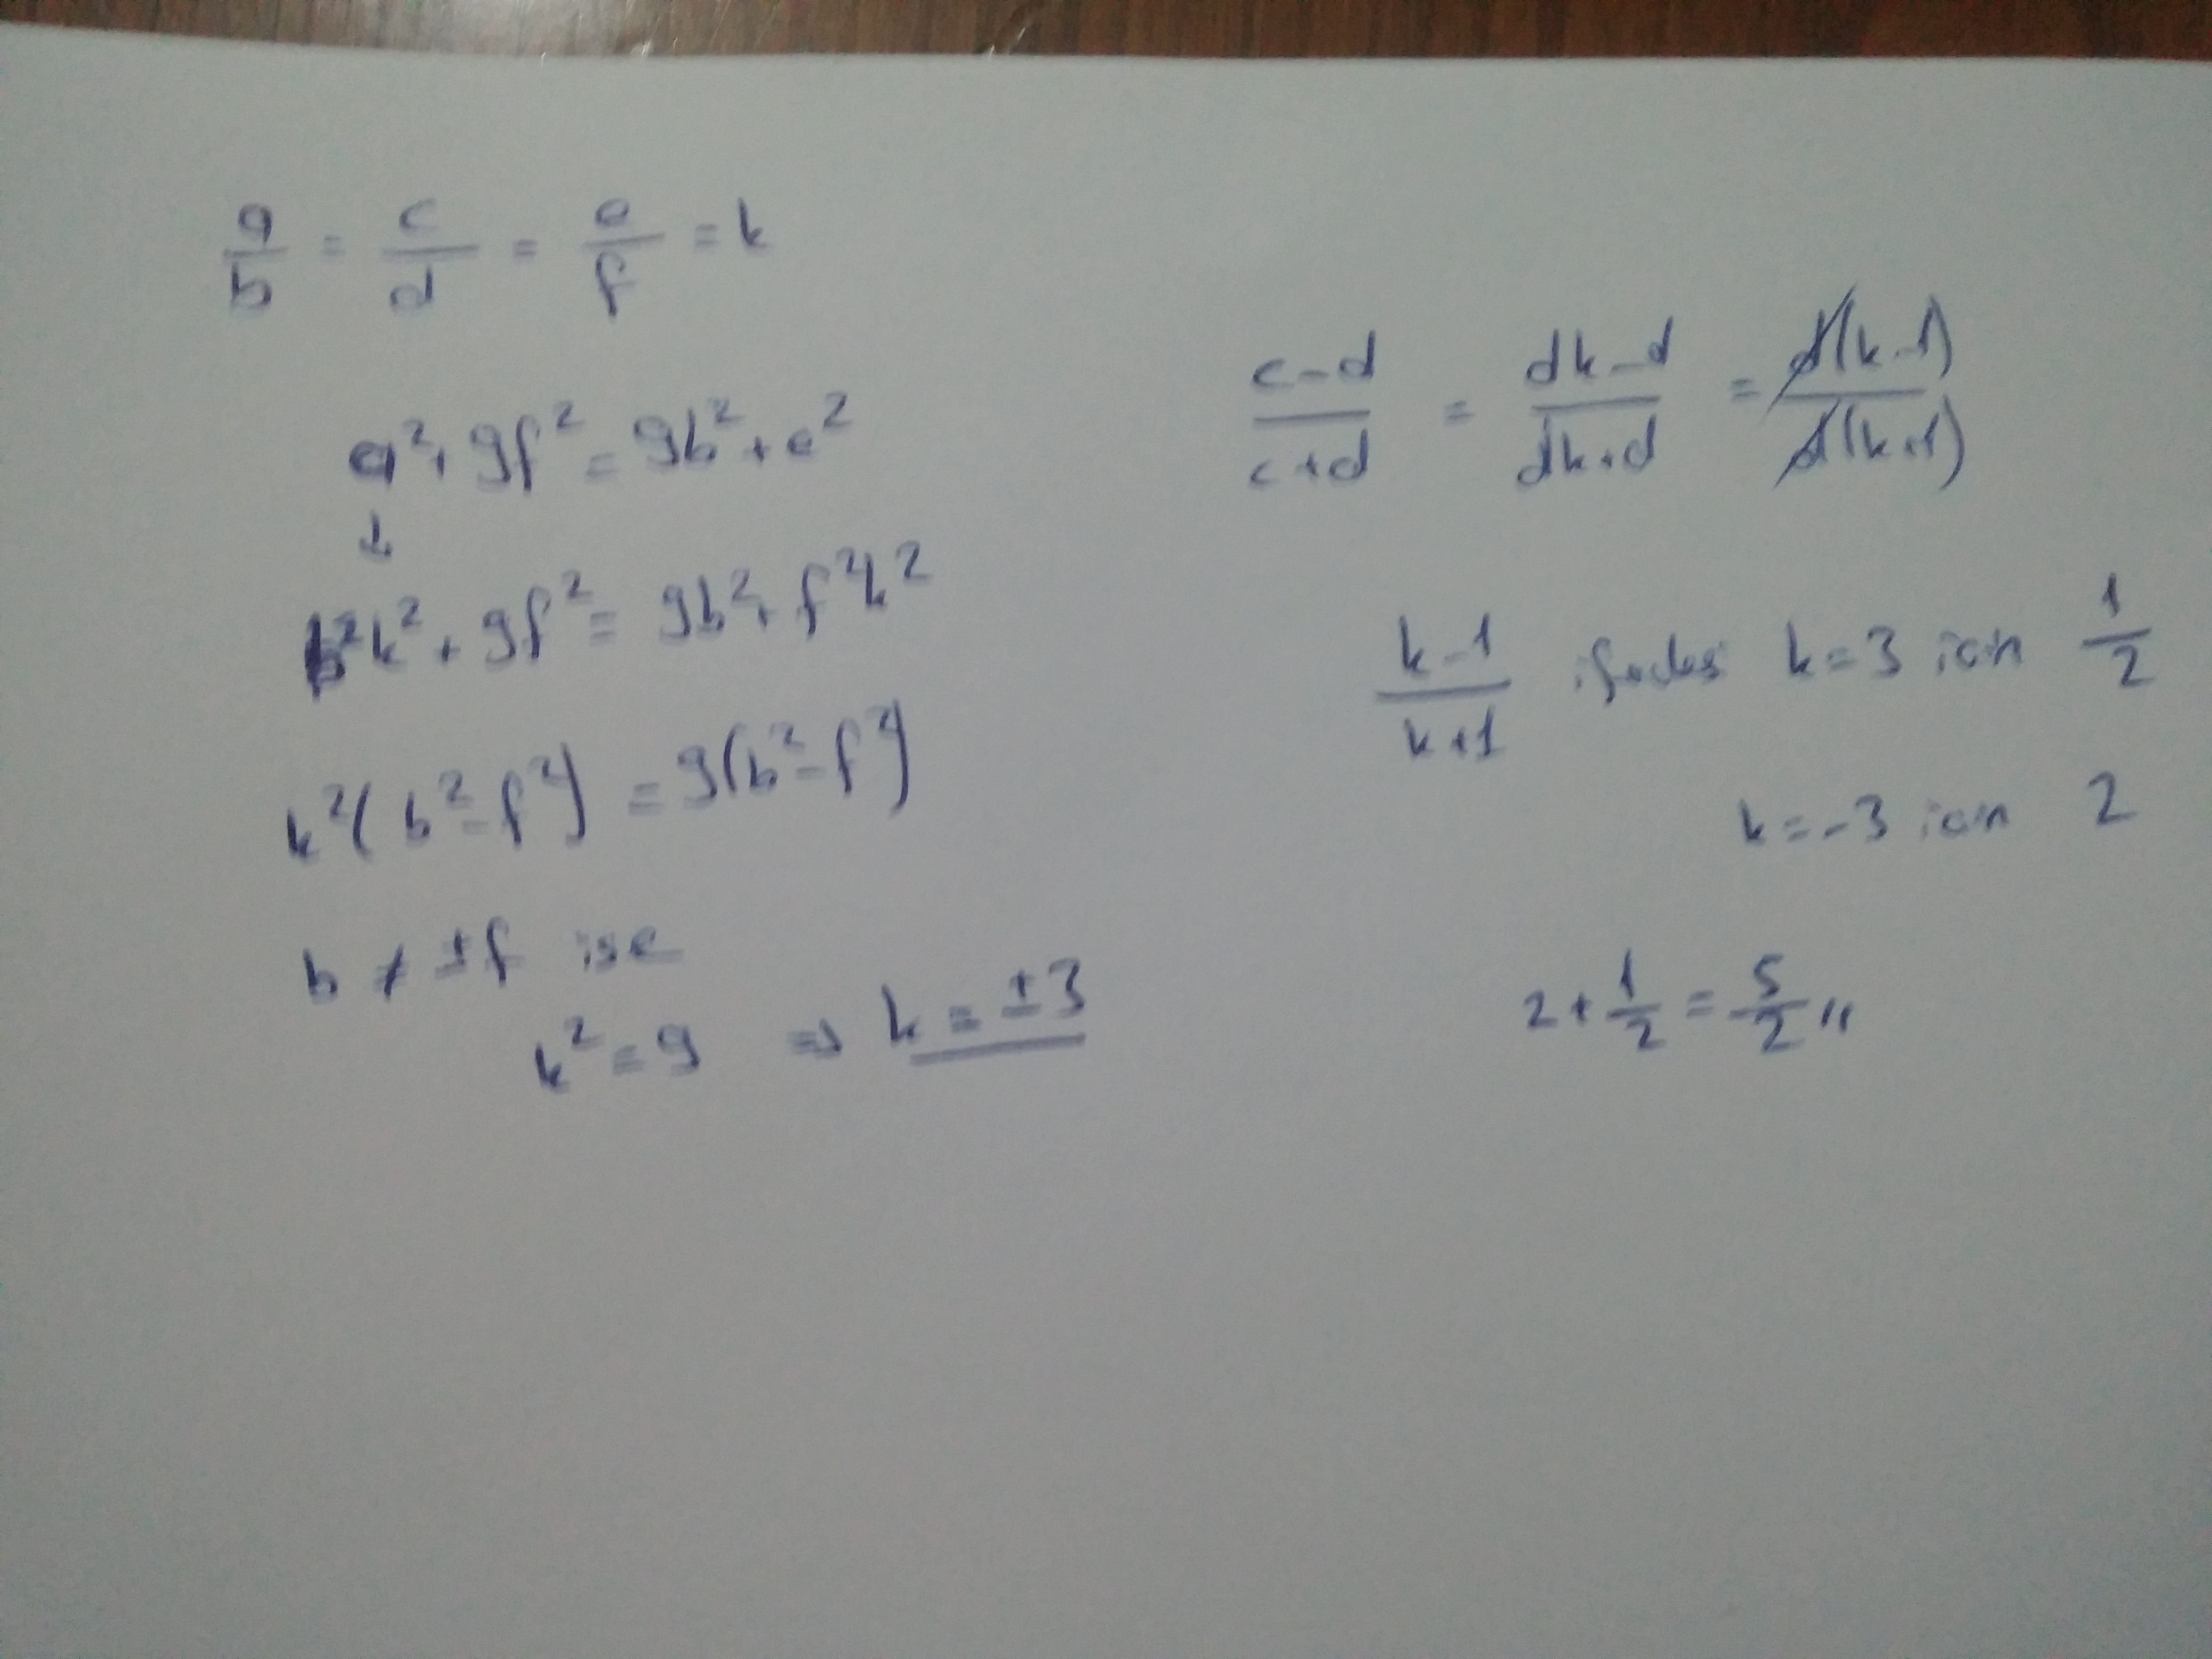 a/b = c/d = e/f = k
a² + 9f² = 9b² + e²
↓
b²k² + 9f² = 9b² + f²k²
k²(b² - f²) = 9(b² - f²)
b ≠ ±f ise
k² = 9 ⇒ k = ±3
(c-d)/(c+d) = (dk-d)/(dk+d) = d(k-1)/d(k+1)
(k-1)/(k+1) ifadesi k=3 için 1/2
k=-3 için 2
2 + 1/2 = 5/2 //